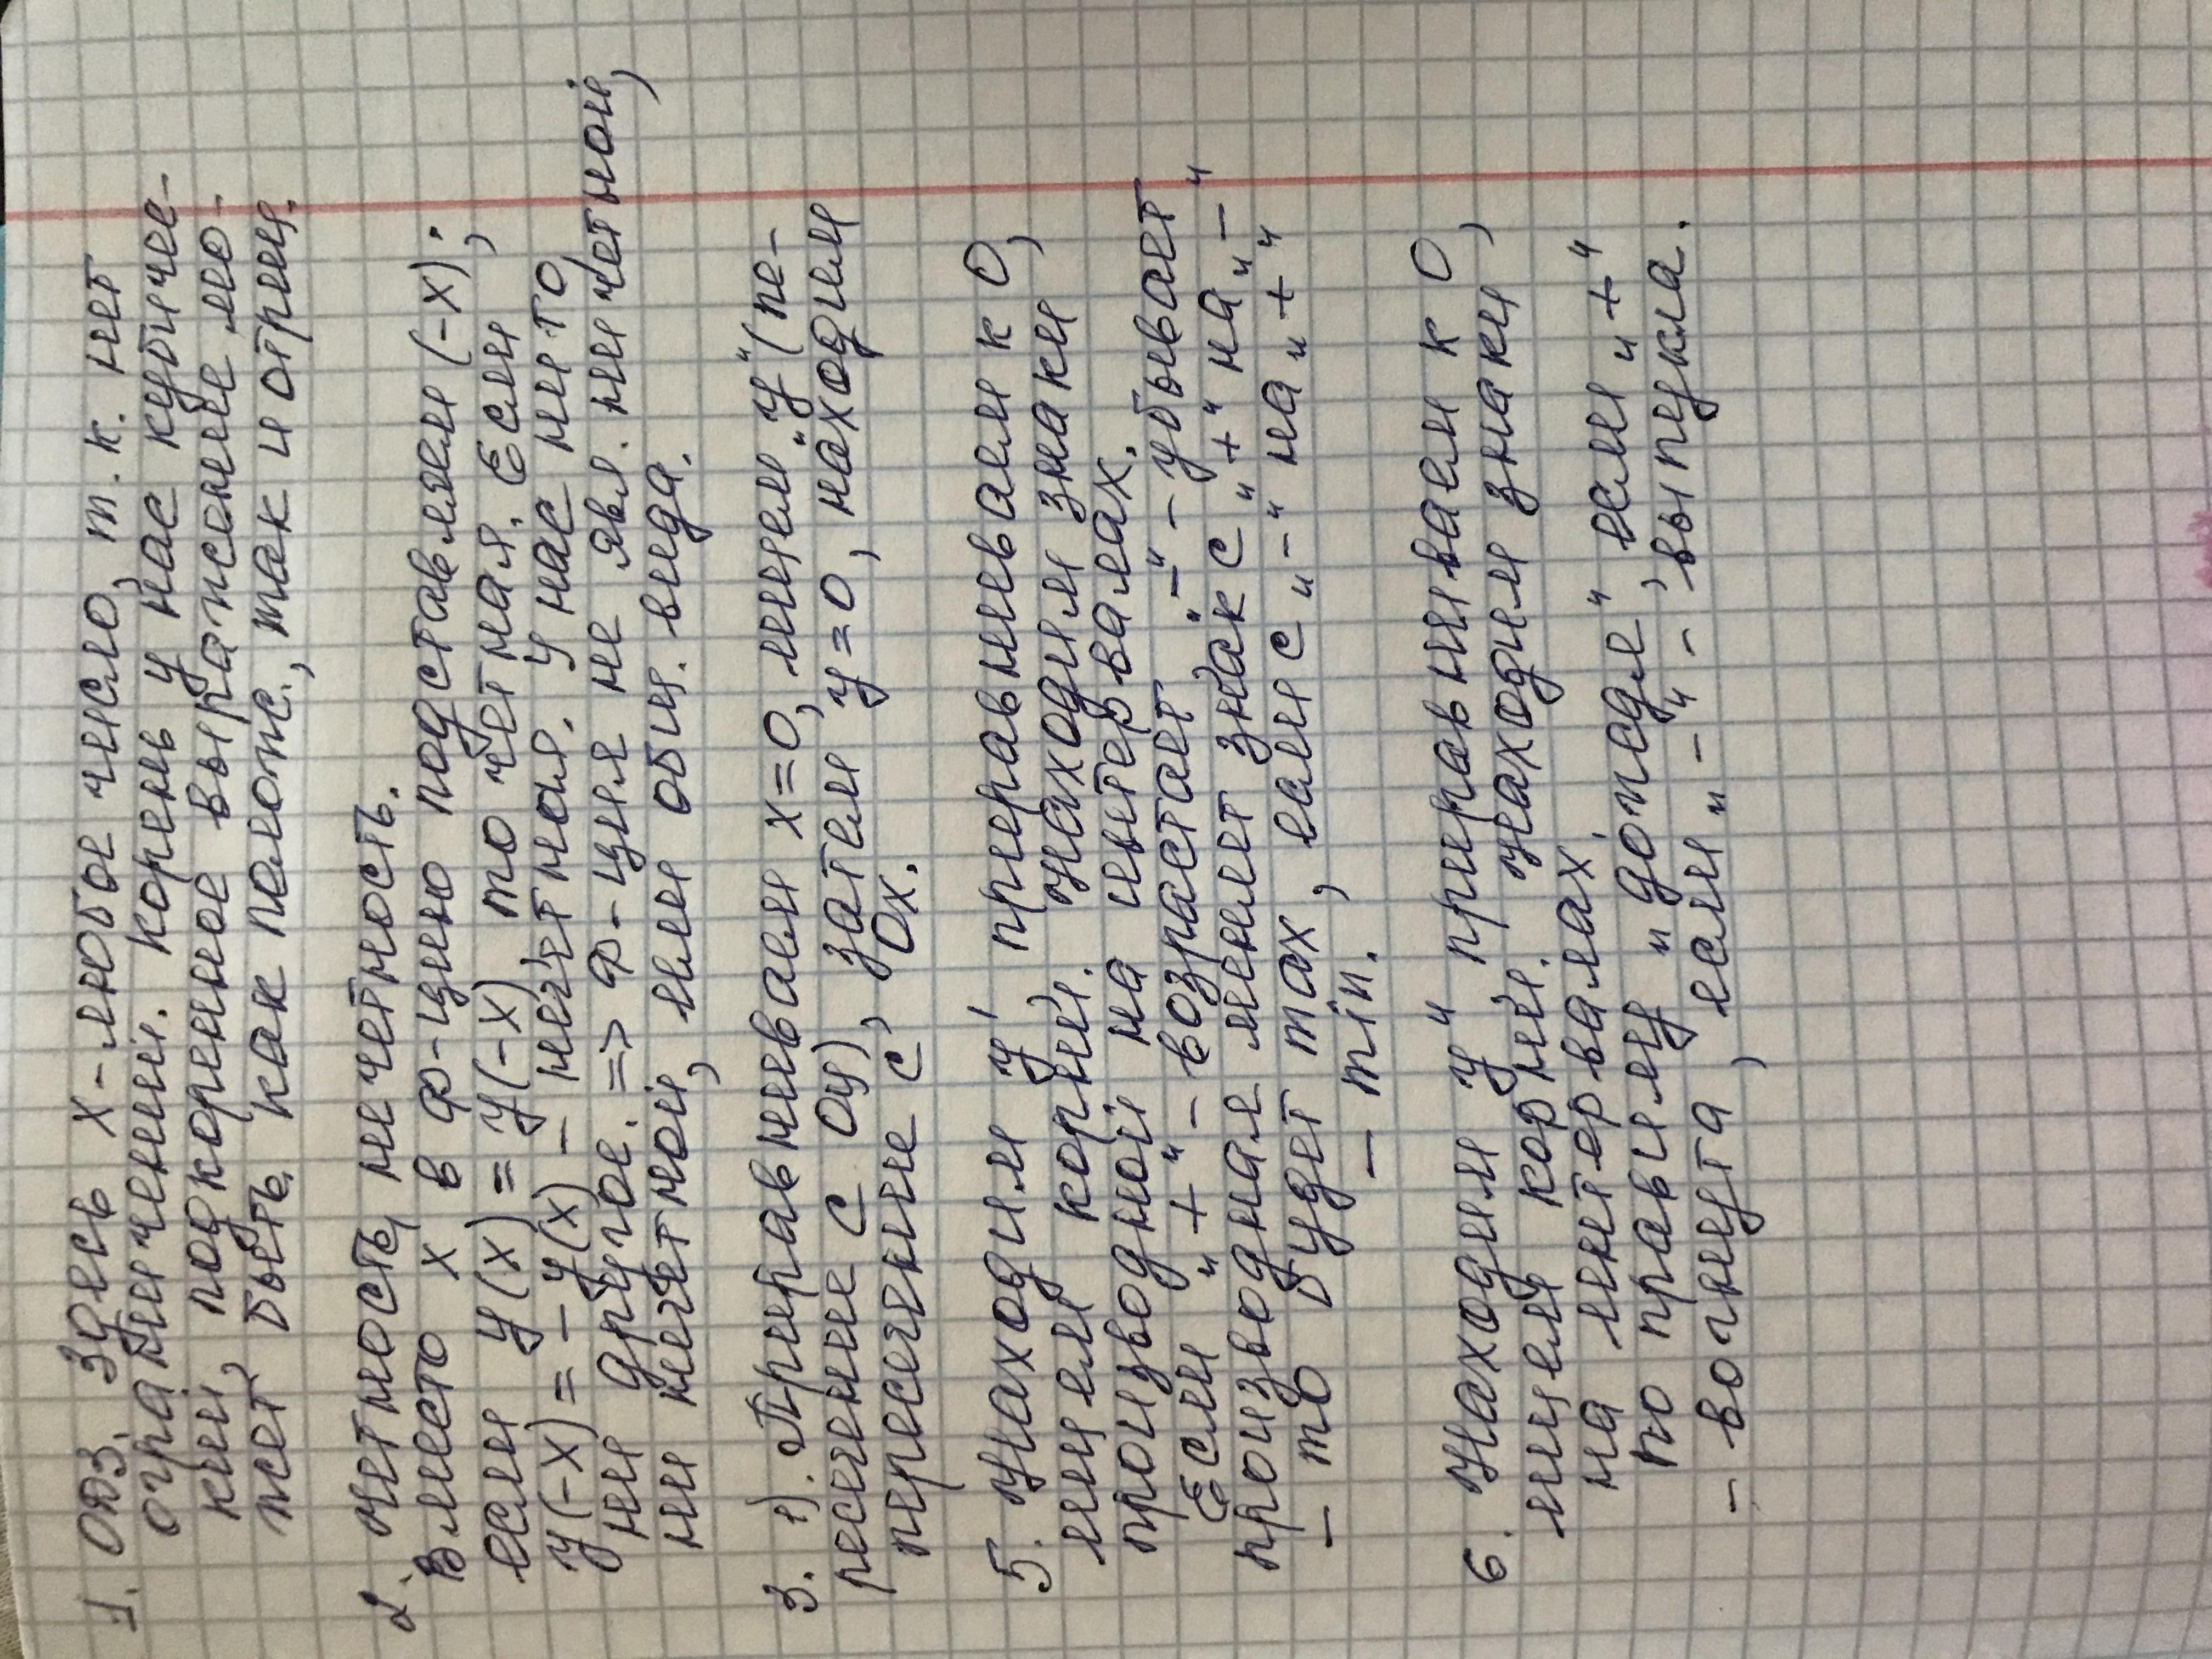 1. ОДЗ. Здесь х-любое число, т.к. нет
ограничений. корень у нас кубичес-
кий, подкоренное выражение мо-
жет быть как полож., так и отриц.
2. Четность, нечетность.
Вместо х в ф-цию подставляем (-х).
если у(х) = у(-х), то четная. Если
у(-х) = -у(х) - нечётная. У нас ни то,
ни другое. => Ф-ция не явл. ни четной,
ни нечетной, или общ. вида.
3. 1). Приравниваем х=0, ищем "у" (пе-
ресечение с Оу), затем у=0, находим
пересечение с Ох.
5. Находим у' приравниваем к 0,
ищем корни. Находим знаки
производной на интервалах.
Если "+" - возрастает "-" - убывает
производная меняет знак с "+" на "-"
- то будет max, если с "-" на "+"
- min.
6. Находим у" приравниваем к 0,
ищем корни. Находим знаки,
на интервалах
по правилу "дождя", если "+"
- вогнута, если "-" - выпукла.